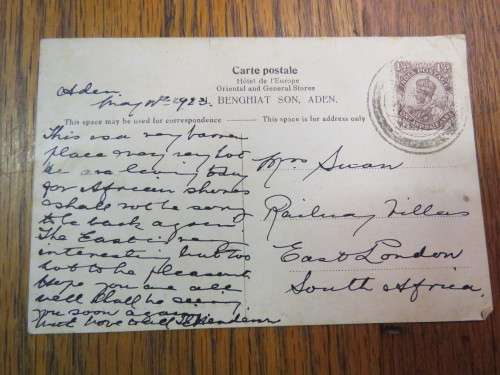 Carte postale
Hôtel de l'Europe
Oriental and General Stores
BENGHIAT SON, ADEN.
This space may be used for correspondence
This space is for address only
INDIA POSTAGE
Aden.
May 1923.
This is a very barren
place very very hot
we are leaving today
for African shores
& shall not be sorry
to be back again
The East is very
interesting but too
hot to be pleasant
hope you are all
well Shall be seeing
you soon again
Mrs Swan
Railway Villas
East London
South Africa.